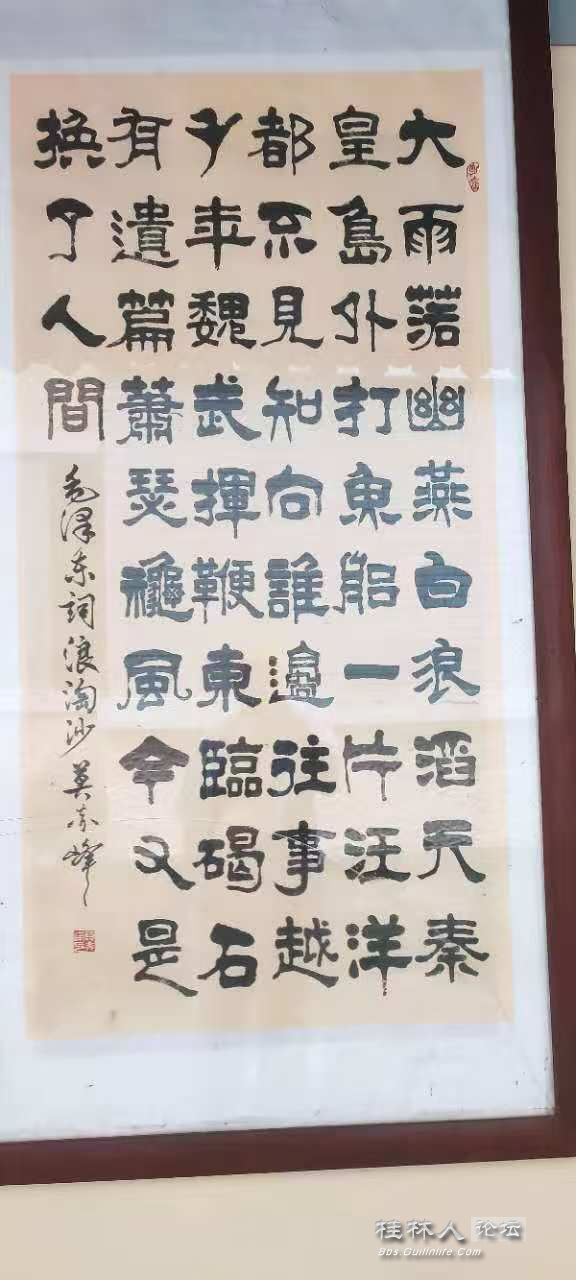 大雨落幽燕白浪滔天秦
皇島外打魚船一片汪洋
都不見知向誰邊往事越
千年魏武揮鞭東臨碣石
有遺篇蕭瑟穐風今又是
換了人間
毛泽东詞浪淘沙 莫 峰
桂林人论坛
Bbs.Guilinlife.Com